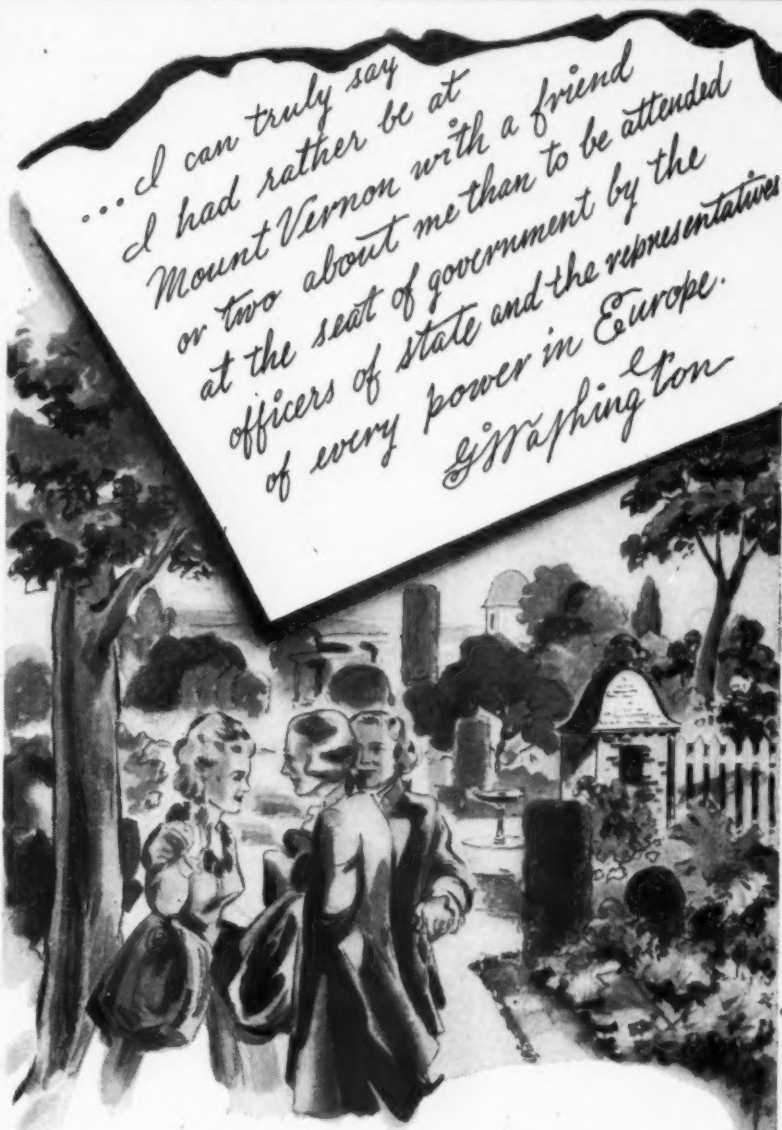 ...I can truly say
I had rather be at
Mount Vernon with a friend
or two about me than to be attended
at the seat of government by the
officers of state and the representatives
of every power in Europe.
G Washington